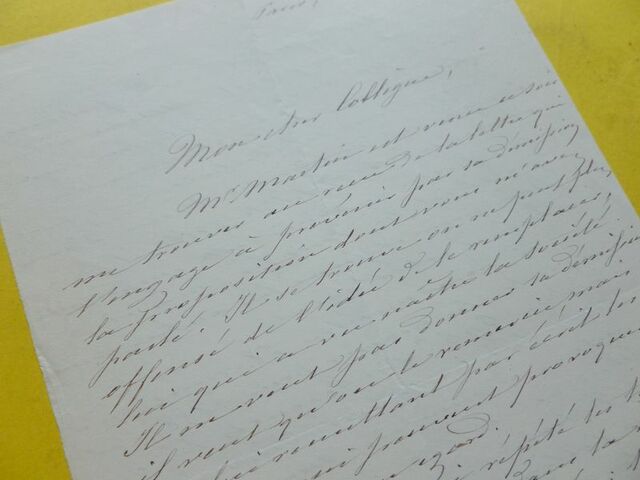 Mon cher Collègue,
Mr Martin est venu ce soir
me trouver au reçu de la lettre qui
l'engage à prévenir par sa démission
la proposition dont vous m'avez
parlé. Il se trouve on ne peut plus
offensé de l'idée de le remplacer,
lui qui a vu naître la société.
Il ne veut pas donner sa démission
il veut qu'on le remercie mais
lui remettant par écrit les
qui peuvent provoquer
égard.
répété